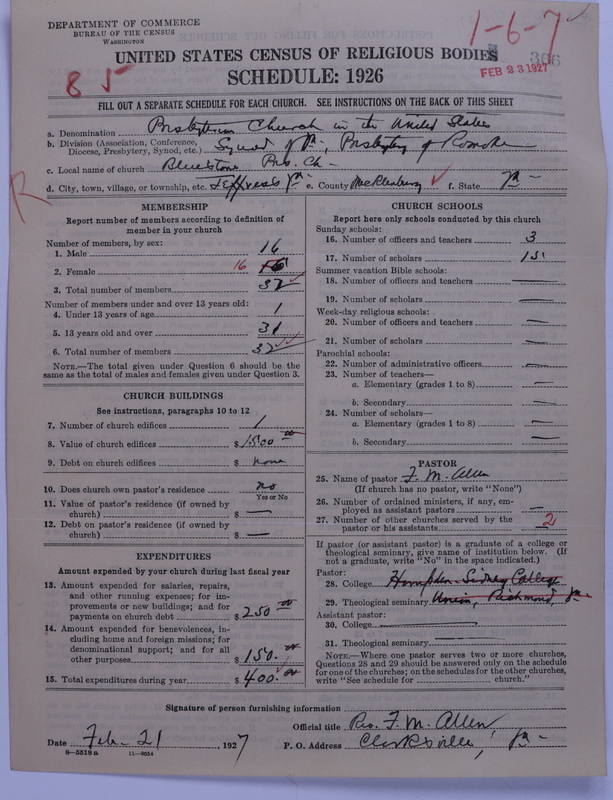 DEPARTMENT OF COMMERCE
BUREAU OF THE CENSUS
WASHINGTON
1-6-7
306
UNITED STATES CENSUS OF RELIGIOUS BODIES
FEB 23 1927
85
SCHEDULE: 1926
FILL OUT A SEPARATE SCHEDULE FOR EACH CHURCH. SEE INSTRUCTIONS ON THE BACK OF THIS SHEET
a. Denomination Presbyterian Church in the United States
b. Division (Association, Conference, Diocese, Presbytery, Synod, etc.) Synod of Va, Presbytery of Roanoke
c. Local name of church Bluestone Pres. Ch-
d. City, town, village, or township, etc. Jeffress Va e. County Mecklenburg f. State Va-
R
MEMBERSHIP
Report number of members according to definition of member in your church
Number of members, by sex:
1. Male 16
2. Female 16 16
3. Total number of members 32
Number of members under and over 13 years old:
4. Under 13 years of age 1
5. 13 years old and over 31
6. Total number of members 32
NOTE.—The total given under Question 6 should be the same as the total of males and females given under Question 3.
CHURCH BUILDINGS
See instructions, paragraphs 10 to 12
7. Number of church edifices 1
8. Value of church edifices $1500.00
9. Debt on church edifices $ none
10. Does church own pastor's residence no
Yes or No
11. Value of pastor's residence (if owned by church) $ —
12. Debt on pastor's residence (if owned by church) $ —
EXPENDITURES
Amount expended by your church during last fiscal year
13. Amount expended for salaries, repairs, and other running expenses; for improvements or new buildings; and for payments on church debt $250.00
14. Amount expended for benevolences, including home and foreign missions; for denominational support; and for all other purposes $150.00
15. Total expenditures during year $400.00
CHURCH SCHOOLS
Report here only schools conducted by this church
Sunday schools:
16. Number of officers and teachers 3
17. Number of scholars 15
Summer vacation Bible schools:
18. Number of officers and teachers —
19. Number of scholars —
Week-day religious schools:
20. Number of officers and teachers —
21. Number of scholars —
Parochial schools:
22. Number of administrative officers —
23. Number of teachers—
a. Elementary (grades 1 to 8) —
b. Secondary —
24. Number of scholars—
a. Elementary (grades 1 to 8) —
b. Secondary —
PASTOR
25. Name of pastor F. M. Allen
(If church has no pastor, write "None")
26. Number of ordained ministers, if any, employed as assistant pastors —
27. Number of other churches served by the pastor or his assistants 2
If pastor (or assistant pastor) is a graduate of a college or theological seminary, give name of institution below. (If not a graduate, write "No" in the space indicated.)
Pastor:
28. College Hampden-Sidney College
29. Theological seminary Union, Richmond, Va-
Assistant pastor:
30. College
31. Theological seminary
NOTE.—Where one pastor serves two or more churches, Questions 28 and 29 should be answered only on the schedule for one of the churches; on the schedules for the other churches, write "See schedule for ______ church."
Signature of person furnishing information
Official title Rev. F. M. Allen
Date Feb. 21, 1927
P. O. Address Clarksville, Va-
8-5518a
11-9554